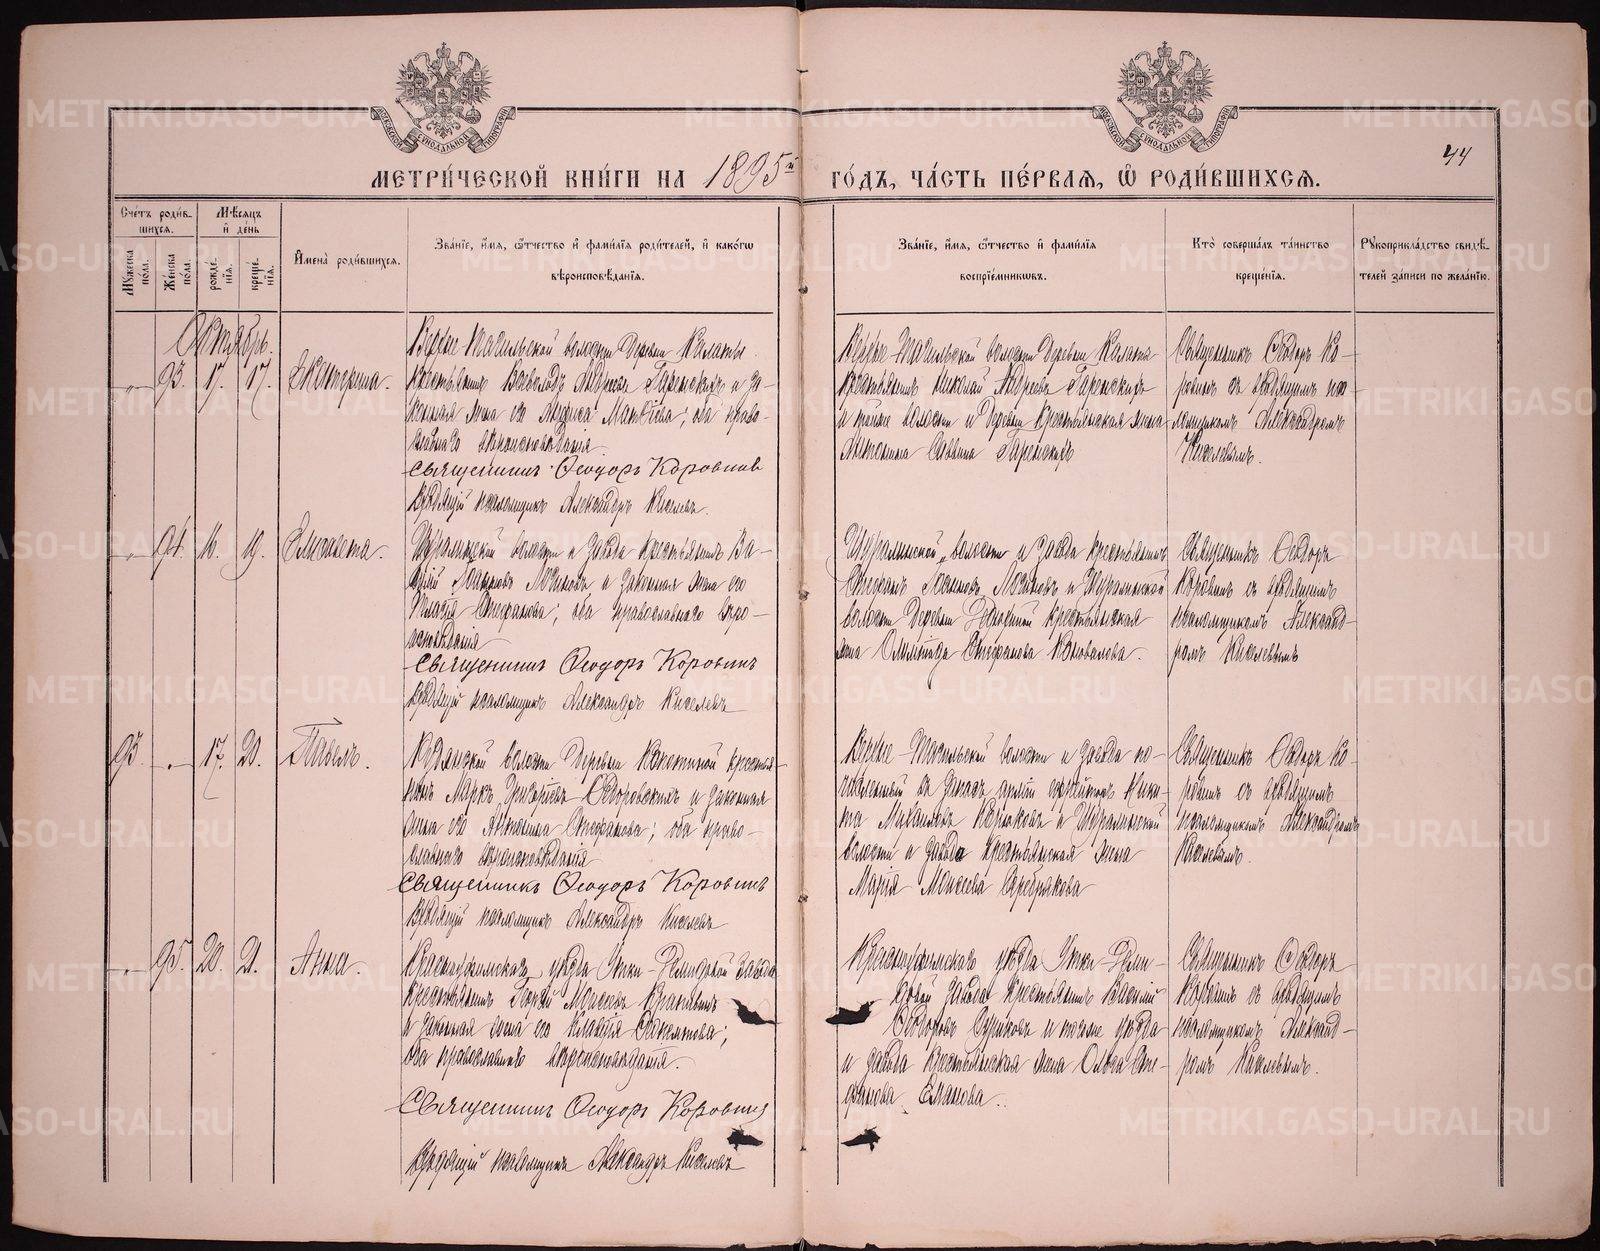 МЕТРИ́ЧЕСКОЙ КНИ́ГИ НА 1895й ГО́ДЪ, ЧА́СТЬ ПЕ́РВАЯ, Ѡ РОДИ́ВШИХСЯ.
44
Сче́тъ роди́в-
шихся.
Мѣ́сяцъ
и҆ де́нь
Мꙋ́жеска по́ла.
Же́нска по́ла.
рожде́-
нїя.
креще́-
нїя.
И҆мена̀ роди́вшихся.
Зва́нїе, и҆́мя, ѻ҆́тчество и҆ фами́лїя роди́телей, и҆ како́гѡ
вѣроисповѣ́данїя.
Зва́нїе, и҆́мя, ѻ҆́тчество и҆ фами́лїя
воспрїе́мникѡвъ.
Кто̀ соверша́лъ та́инство
креще́нїя.
Рꙋкоприкла́дство свидѣ́-
телей за́писи по жела́нїю.
Октябрь.
93. 17. 17. Екатерина.
Верхне-Тагильской волости деревни Калаты
крестьянинъ Всеволодъ Андреевъ и за-
конная жена его Матвѣева; оба право-
славнаго вѣроисповѣданія.
Священникъ Ѳеодоръ Коровинъ
Псаломщикъ Александръ Киселевъ.
Верхне-Тагильской волости деревни Калаты
крестьянинъ Николай Андреевъ
и той же волости и деревни крестьянская жена
Саввина
Священникъ Ѳеодоръ Ко-
ровинъ съ пса-
ломщикомъ Александромъ
Киселевымъ.
94. 16. 19. Елисавета.
Шуралинской волости и завода крестьянинъ Ва-
силій Логиновъ и законная жена его
Стефанова; оба православнаго вѣро-
исповѣданія
Священникъ Ѳеодоръ Коровинъ
псаломщикъ Александръ Киселевъ
Шуралинской волости и завода крестьянинъ
Стефанъ Логиновъ и Шуралинской
волости деревни крестьянская
жена Олимпіада Стефанова Коновалова.
Священникъ Ѳеодоръ
Коровинъ съ
псаломщикомъ Александ-
ромъ Киселевымъ
93. 17. 20. Павелъ.
волости деревни крестья-
нинъ Маркъ Григорьевъ и законная
жена его Стефанова; оба право-
славнаго вѣроисповѣданія
Священникъ Ѳеодоръ Коровинъ
псаломщикъ Александръ Киселевъ
Верхне-Тагильской волости и завода
въ запасъ арміи Ники-
та Михаиловъ и Шуралинской
волости и завода крестьянская жена
Марія Моисеева Серебрякова
Священникъ Ѳеодоръ Ко-
ровинъ съ
псаломщикомъ Александромъ
Киселевымъ.
95. 20. 21. Анна.
Красноуфимскаго уѣзда Утки-Демидовой завода
крестьянинъ Моисеевъ
и законная жена его Клавдія;
оба православнаго вѣроисповѣданія.
Священникъ Ѳеодоръ Коровинъ
псаломщикъ Александръ Киселевъ
Красноуфимскаго уѣзда Утки-Деми-
довой завода крестьянинъ Василій
Ѳеодоровъ и того же уѣзда
и завода крестьянская жена Ольга Сте-
фанова Еманова.
Священникъ Ѳеодоръ
Коровинъ съ
псаломщикомъ Александ-
ромъ Киселевымъ.
METRIKI.GASO-URAL.RU